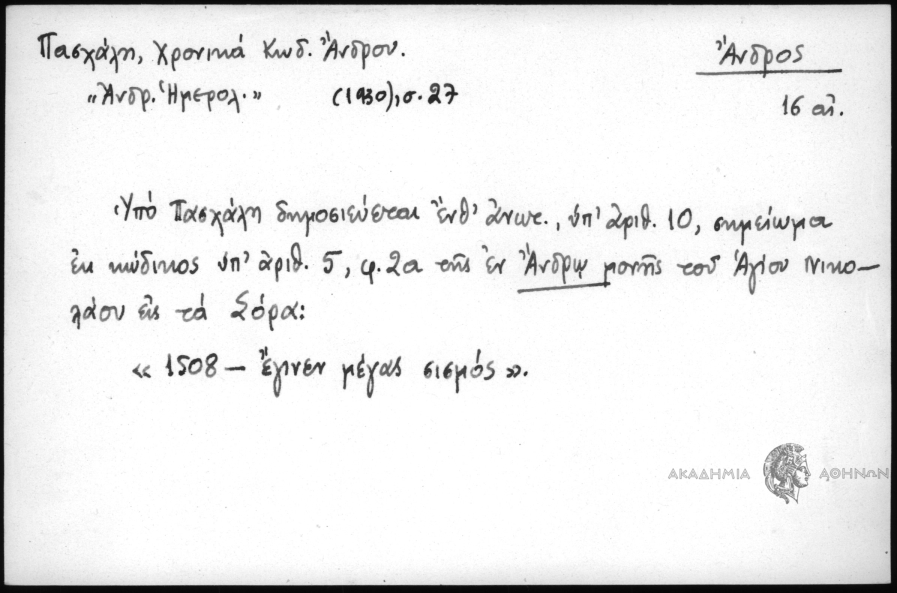 Πασχάλη, Χρονικά Κωδ. Ἄνδρου.
"Ἀνδρ. Ἡμερολ." (1930), σ. 27
Ἄνδρος
16 αἰ.
Ὑπό Πασχάλη δημοσιεύεται ἔνθ' ἀνωτ., ὑπ' ἀριθ. 10, σημείωμα
ἐκ κώδικος ὑπ' ἀριθ. 5, φ. 2α τῆς ἐν Ἄνδρῳ μονῆς τοῦ Ἁγίου Νικο-
λάου εἰς τά Σόρα:
« 1508 – ἔγινεν μέγας σισμός ».
ΑΚΑΔΗΜΙΑ ΑΘΗΝΩΝ